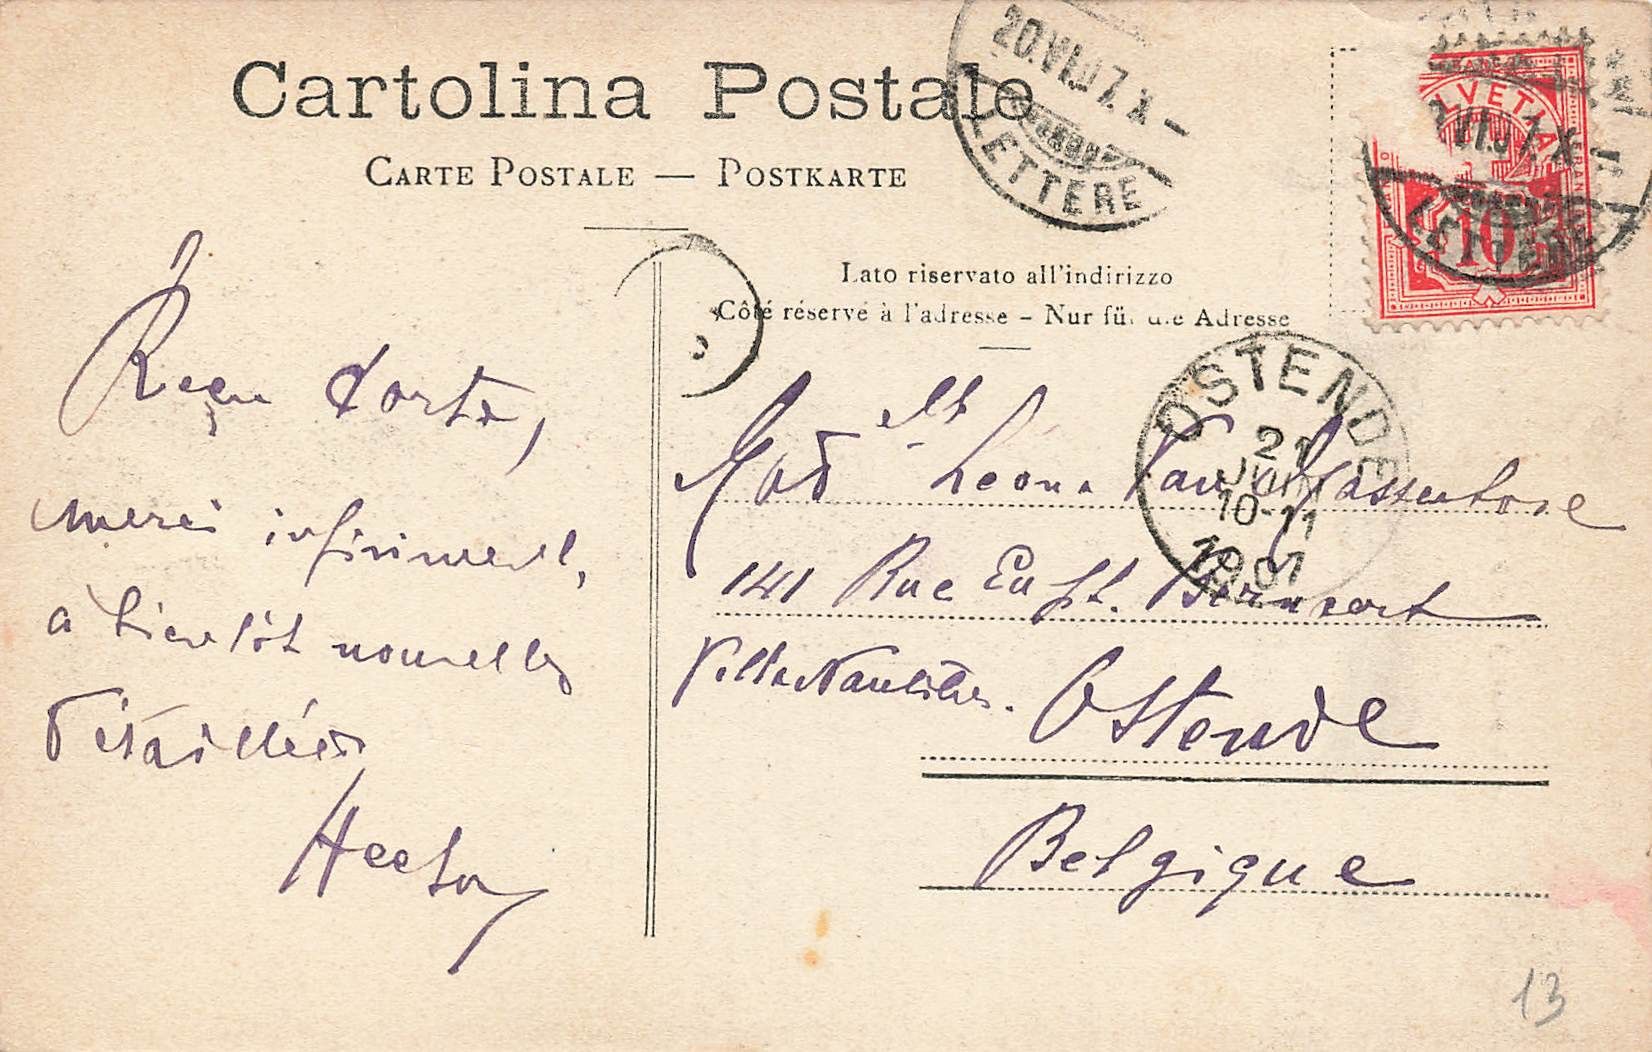 Cartolina Postale
CARTE POSTALE — POSTKARTE
20.VI.07.X
LETTERE
HELVETIA
VI.07.X
10
LETTERE
Lato riservato all'indirizzo
Côté réservé à l'adresse – Nur für die Adresse
OSTENDE
21
JUIN
10-11
1907
Reçu carte,
merci infiniment,
à bientôt nouvelles
détaillées
Hector
Mad elle Léona Van
141 Rue Euph. Beernaert
Villa Nautilus.
Ostende
Belgique
13